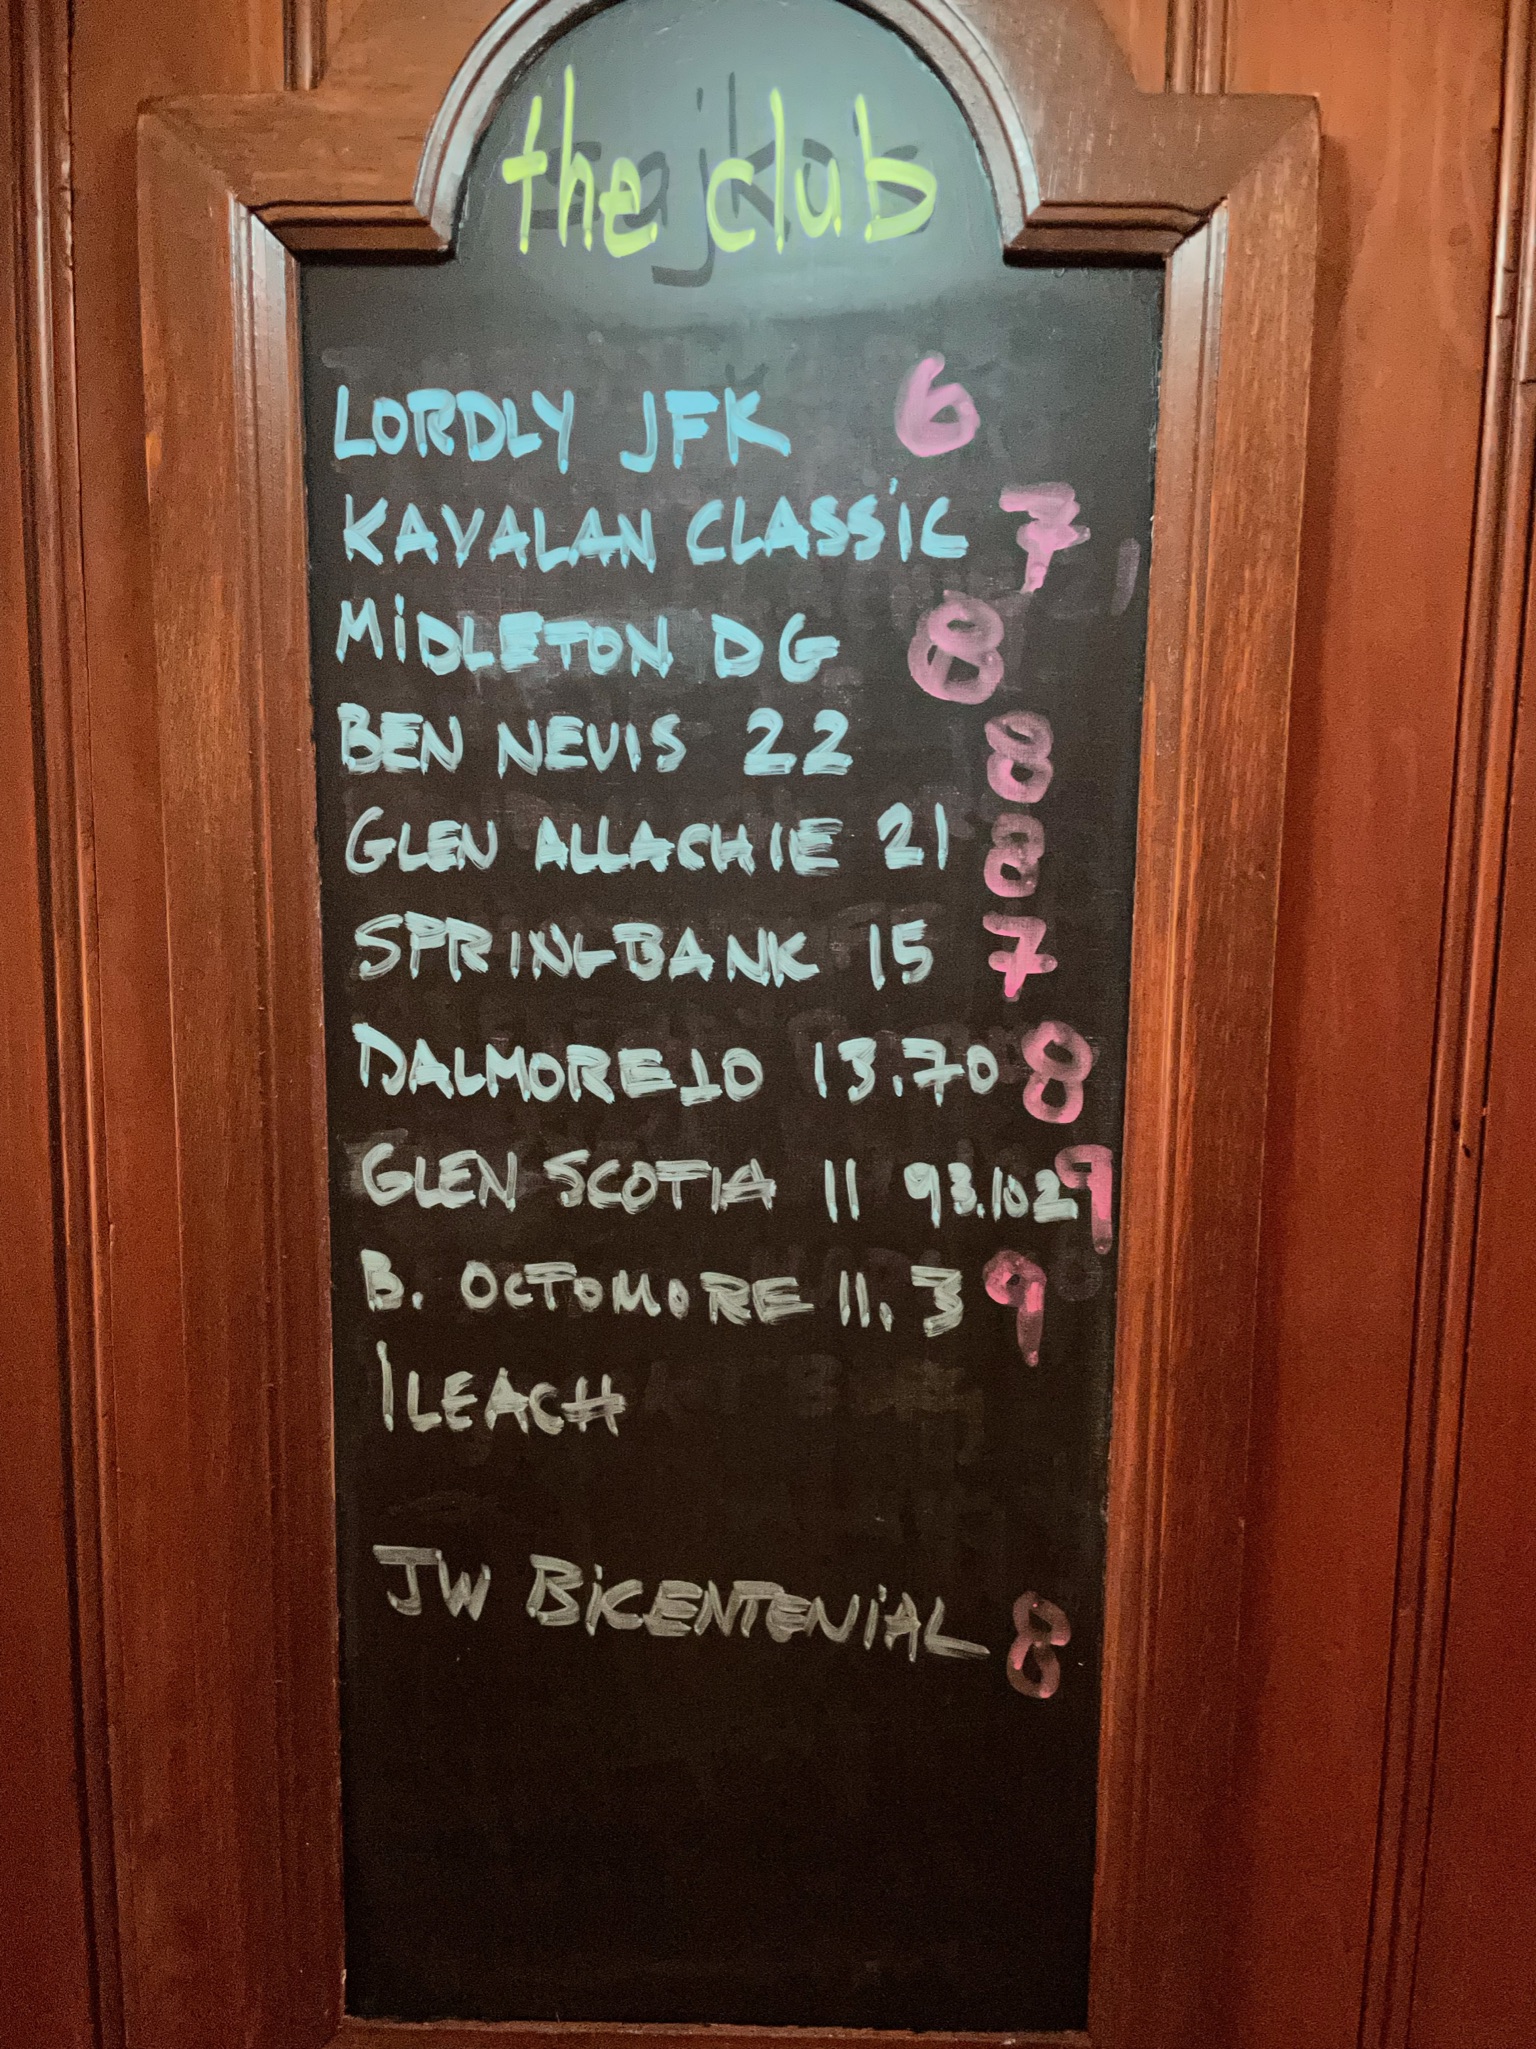 the club
LORDLY JFK 6
KAVALAN CLASSiC 7
MiDLETON DG 8
BEN NEVIS 22 8
GLEN ALLACHIE 21 8
SPRINGBANK 15 7
DALMORE 10 13.70 8
GLEN SCOTIA 11 93.102 9
B. OCTOMORE 11.3 9
ILEACH
JW BiCENTENiAL 8